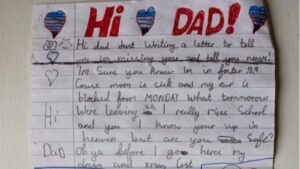 Hi DAD!
Hi dad Just writing a letter to tell
you im missing you and tell you news:
I'm Sure you know Im in foster
Couse mom is sick and my ear is
blocked from MONDAY What tomorrow
Hi Were leaving I really Miss School
and you I know your up in
heaven but are you Safe?
Dad Oh ya before I go heres my
and xmas list